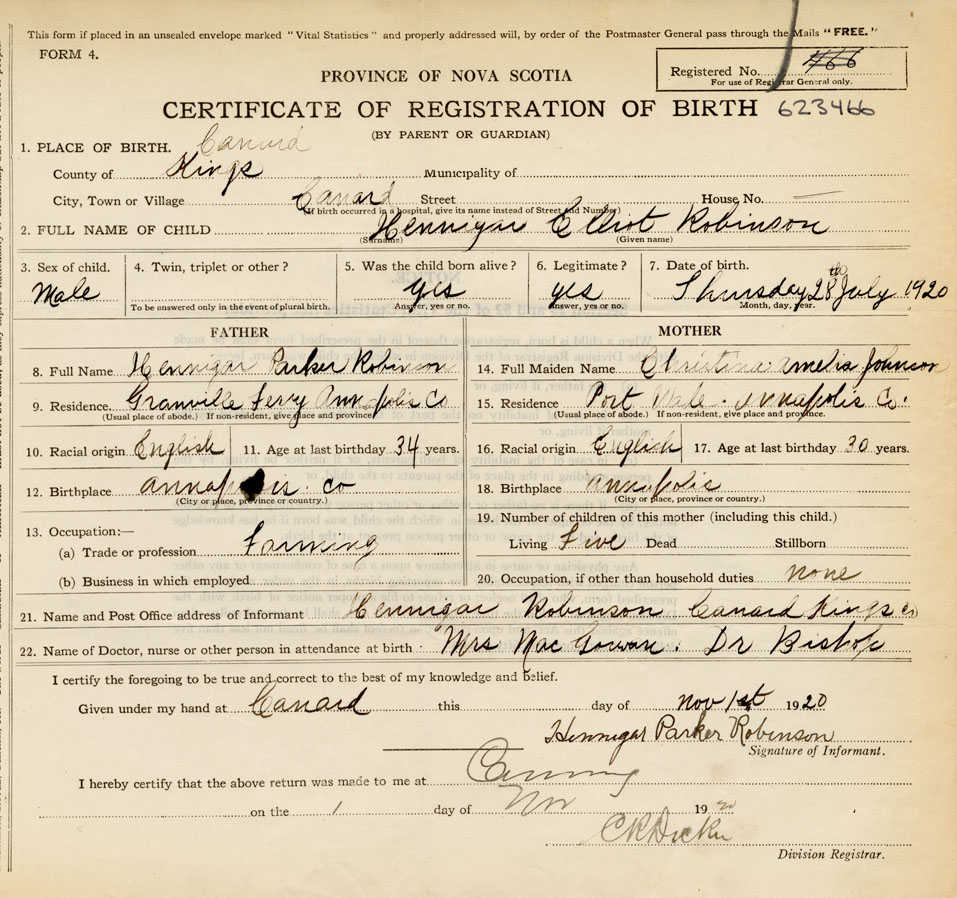 This form if placed in an unsealed envelope marked "Vital Statistics" and properly addressed will, by order of the Postmaster General pass through the Mails "FREE."
FORM 4.
PROVINCE OF NOVA SCOTIA
Registered No. 466
For use of Registrar General only.
CERTIFICATE OF REGISTRATION OF BIRTH 623466
(BY PARENT OR GUARDIAN)
1. PLACE OF BIRTH. Canard
County of Kings Municipality of
City, Town or Village Canard Street House No. —
(If birth occurred in a hospital, give its name instead of Street and Number)
2. FULL NAME OF CHILD Hennigar Elliot Robinson
(Surname) (Given name)
3. Sex of child. Male
4. Twin, triplet or other?
To be answered only in the event of plural birth.
5. Was the child born alive? yes
Answer, yes or no.
6. Legitimate? yes
Answer, yes or no.
7. Date of birth. Thursday 28th July 1920
Month, day, year.
FATHER
8. Full Name Hennigar Parker Robinson
9. Residence Granville Ferry Annapolis Co
(Usual place of abode.) If non-resident, give place and province.
10. Racial origin English 11. Age at last birthday 34 years.
12. Birthplace Annapolis Co
(City or place, province or country.)
13. Occupation:—
(a) Trade or profession Farming
(b) Business in which employed
MOTHER
14. Full Maiden Name Christina Amelia Johnson
15. Residence Port Wade Annapolis Co.
(Usual place of abode.) If non-resident, give place and province.
16. Racial origin English 17. Age at last birthday 30 years.
18. Birthplace Annapolis
(City or place, province or country.)
19. Number of children of this mother (including this child.)
Living Five Dead Stillborn
20. Occupation, if other than household duties none
21. Name and Post Office address of Informant Hennigar Robinson Canard Kings Co
22. Name of Doctor, nurse or other person in attendance at birth Mrs Mac Gowan. Dr Bishop
I certify the foregoing to be true and correct to the best of my knowledge and belief.
Given under my hand at Canard this day of Nov 1st 1920
Hennigar Parker Robinson
Signature of Informant.
I hereby certify that the above return was made to me at Canning
on the 1 day of Nov 1920
Division Registrar.